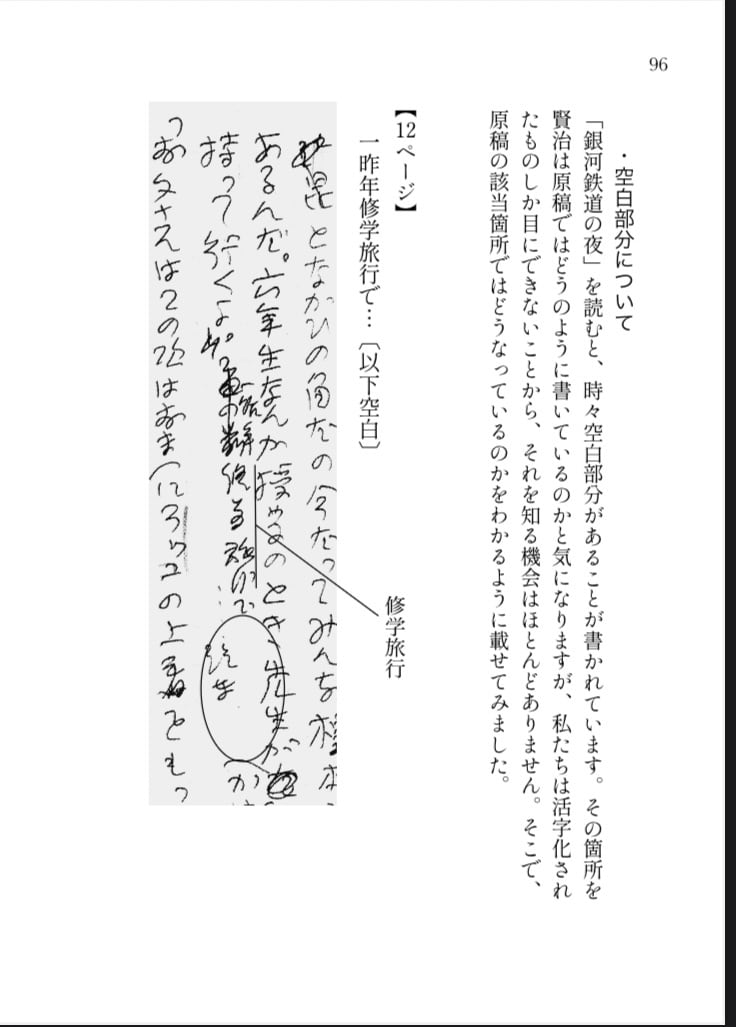 96
・空白部分について
「銀河鉄道の夜」を読むと、時々空白部分があることが書かれています。その箇所を
賢治は原稿ではどうのように書いているのかと気になりますが、私たちは活字化され
たものしか目にできないことから、それを知る機会はほとんどありません。そこで、
原稿の該当箇所ではどうなっているのかをわかるように載せてみました。
【12ページ】
一昨年修学旅行で…〔以下空白〕
修学旅行
となかひの角だの今だってみんな標本
あるんだ。六年生なんか授業のとき先生が
持って行くよ。一昨年修学旅行で
「お父さんはこの次はおまへにラッコの上着をもっ